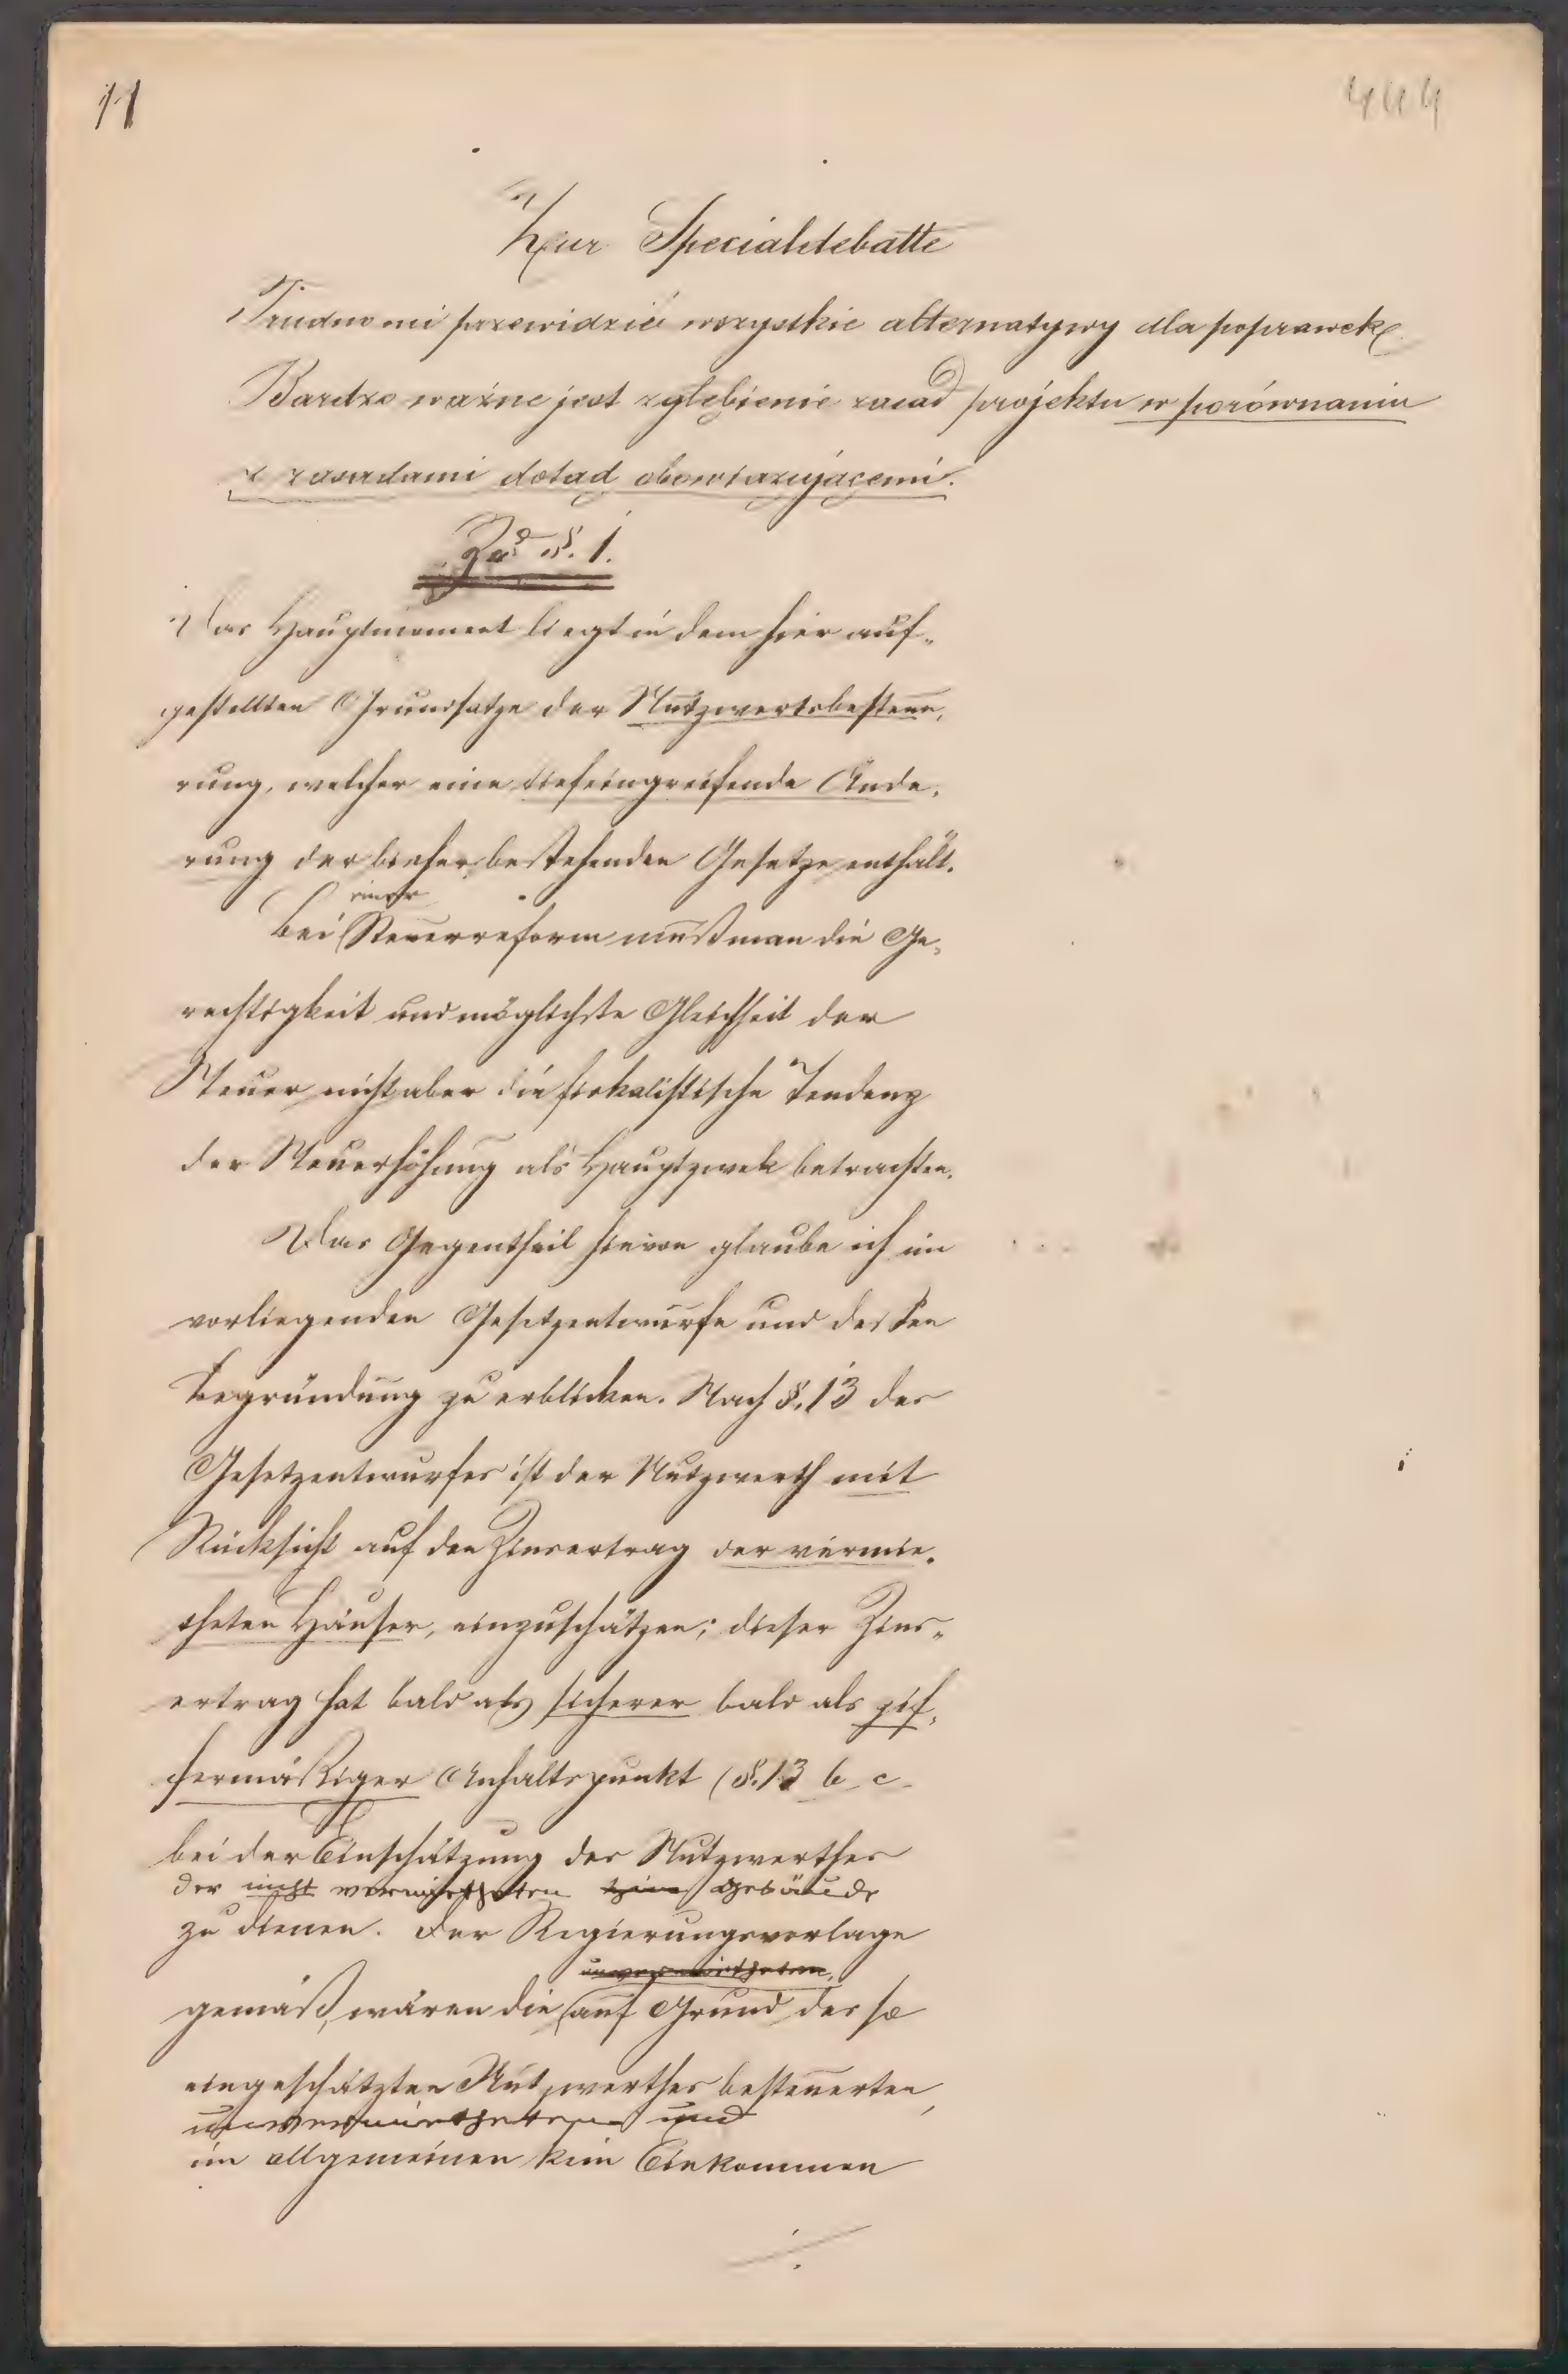 11
444
Zur Specialdebatte
Trudno mi przewidzieć wszystkie alternatywy dla poprawek
Bardzo ważne jest zgłebienie zasad projektu w porównaniu
z zasadami dotad obowiazującemi.
Zu §. 1.
Das Hauptmoment liegt in dem hier auf-
gestellten Grundsatze der Nutzwertsbesteue-
rung, welcher eine tiefeingreifende Ände-
rung der bisher bestehenden Gesetze enthält.
einer
Bei Steuerreform muß man die Ge-
rechtigkeit und möglichste Gleichheit der
Steuer nicht aber die fiskalistische Tendenz
der Steuerhöhung als Hauptzwek betrachten.
Das Gegentheil hievon glaube ich im
vorliegenden Gesetzentwurfe und dessen
Begründung zu erblicken. Nach §. 13 des
Gesetzentwurfes ist der Nutzwerth mit
Rücksicht auf den Zinsertrag der vermie-
theten Häuser, einzuschätzen; dieser Zins-
ertrag hat bald als sicherer bald als zif-
fermäßiger Anhaltspunkt (§. 13 b c
bei der Einschätzung des Nutzwerthes
der nicht vermietheten Gebäude
zu dienen. Der Regierungsvorlage
unvermietheten,
gemäß, wären die auf Grund des so
eingeschätzten Nutzwerthes besteuerten,
unvermietheten und
im allgemeinen kein Einkommen
./.